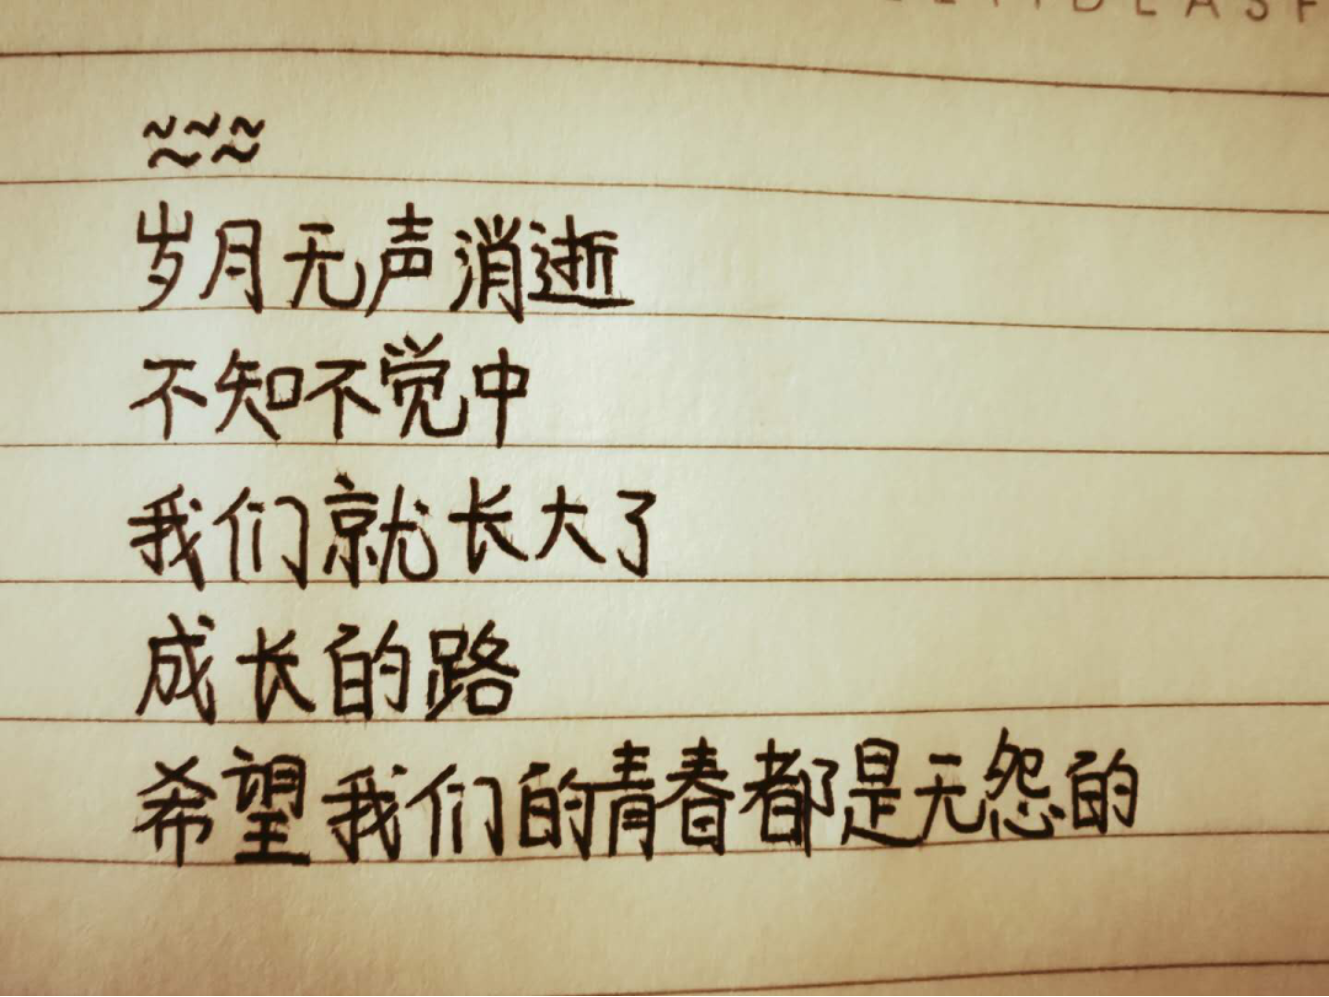 ~~~
~~
岁月无声消逝
不知不觉中
我们就长大了
成长的路
希望我们的青春都是无怨的